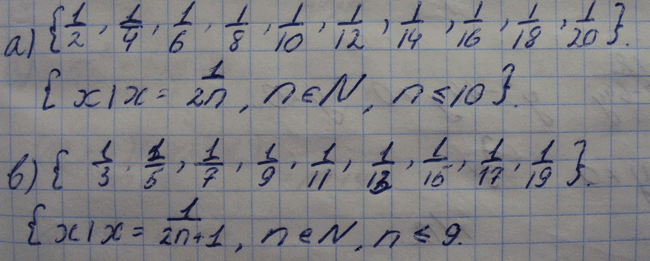 а) {1/2, 1/4, 1/6, 1/8, 1/10, 1/12, 1/14, 1/16, 1/18, 1/20}.
{x | x = 1/2n, n ∈ N, n ≤ 10}.
в) {1/3, 1/5, 1/7, 1/9, 1/11, 1/13, 1/15, 1/17, 1/19}.
{x | x = 1/2n+1, n ∈ N, n ≤ 9.